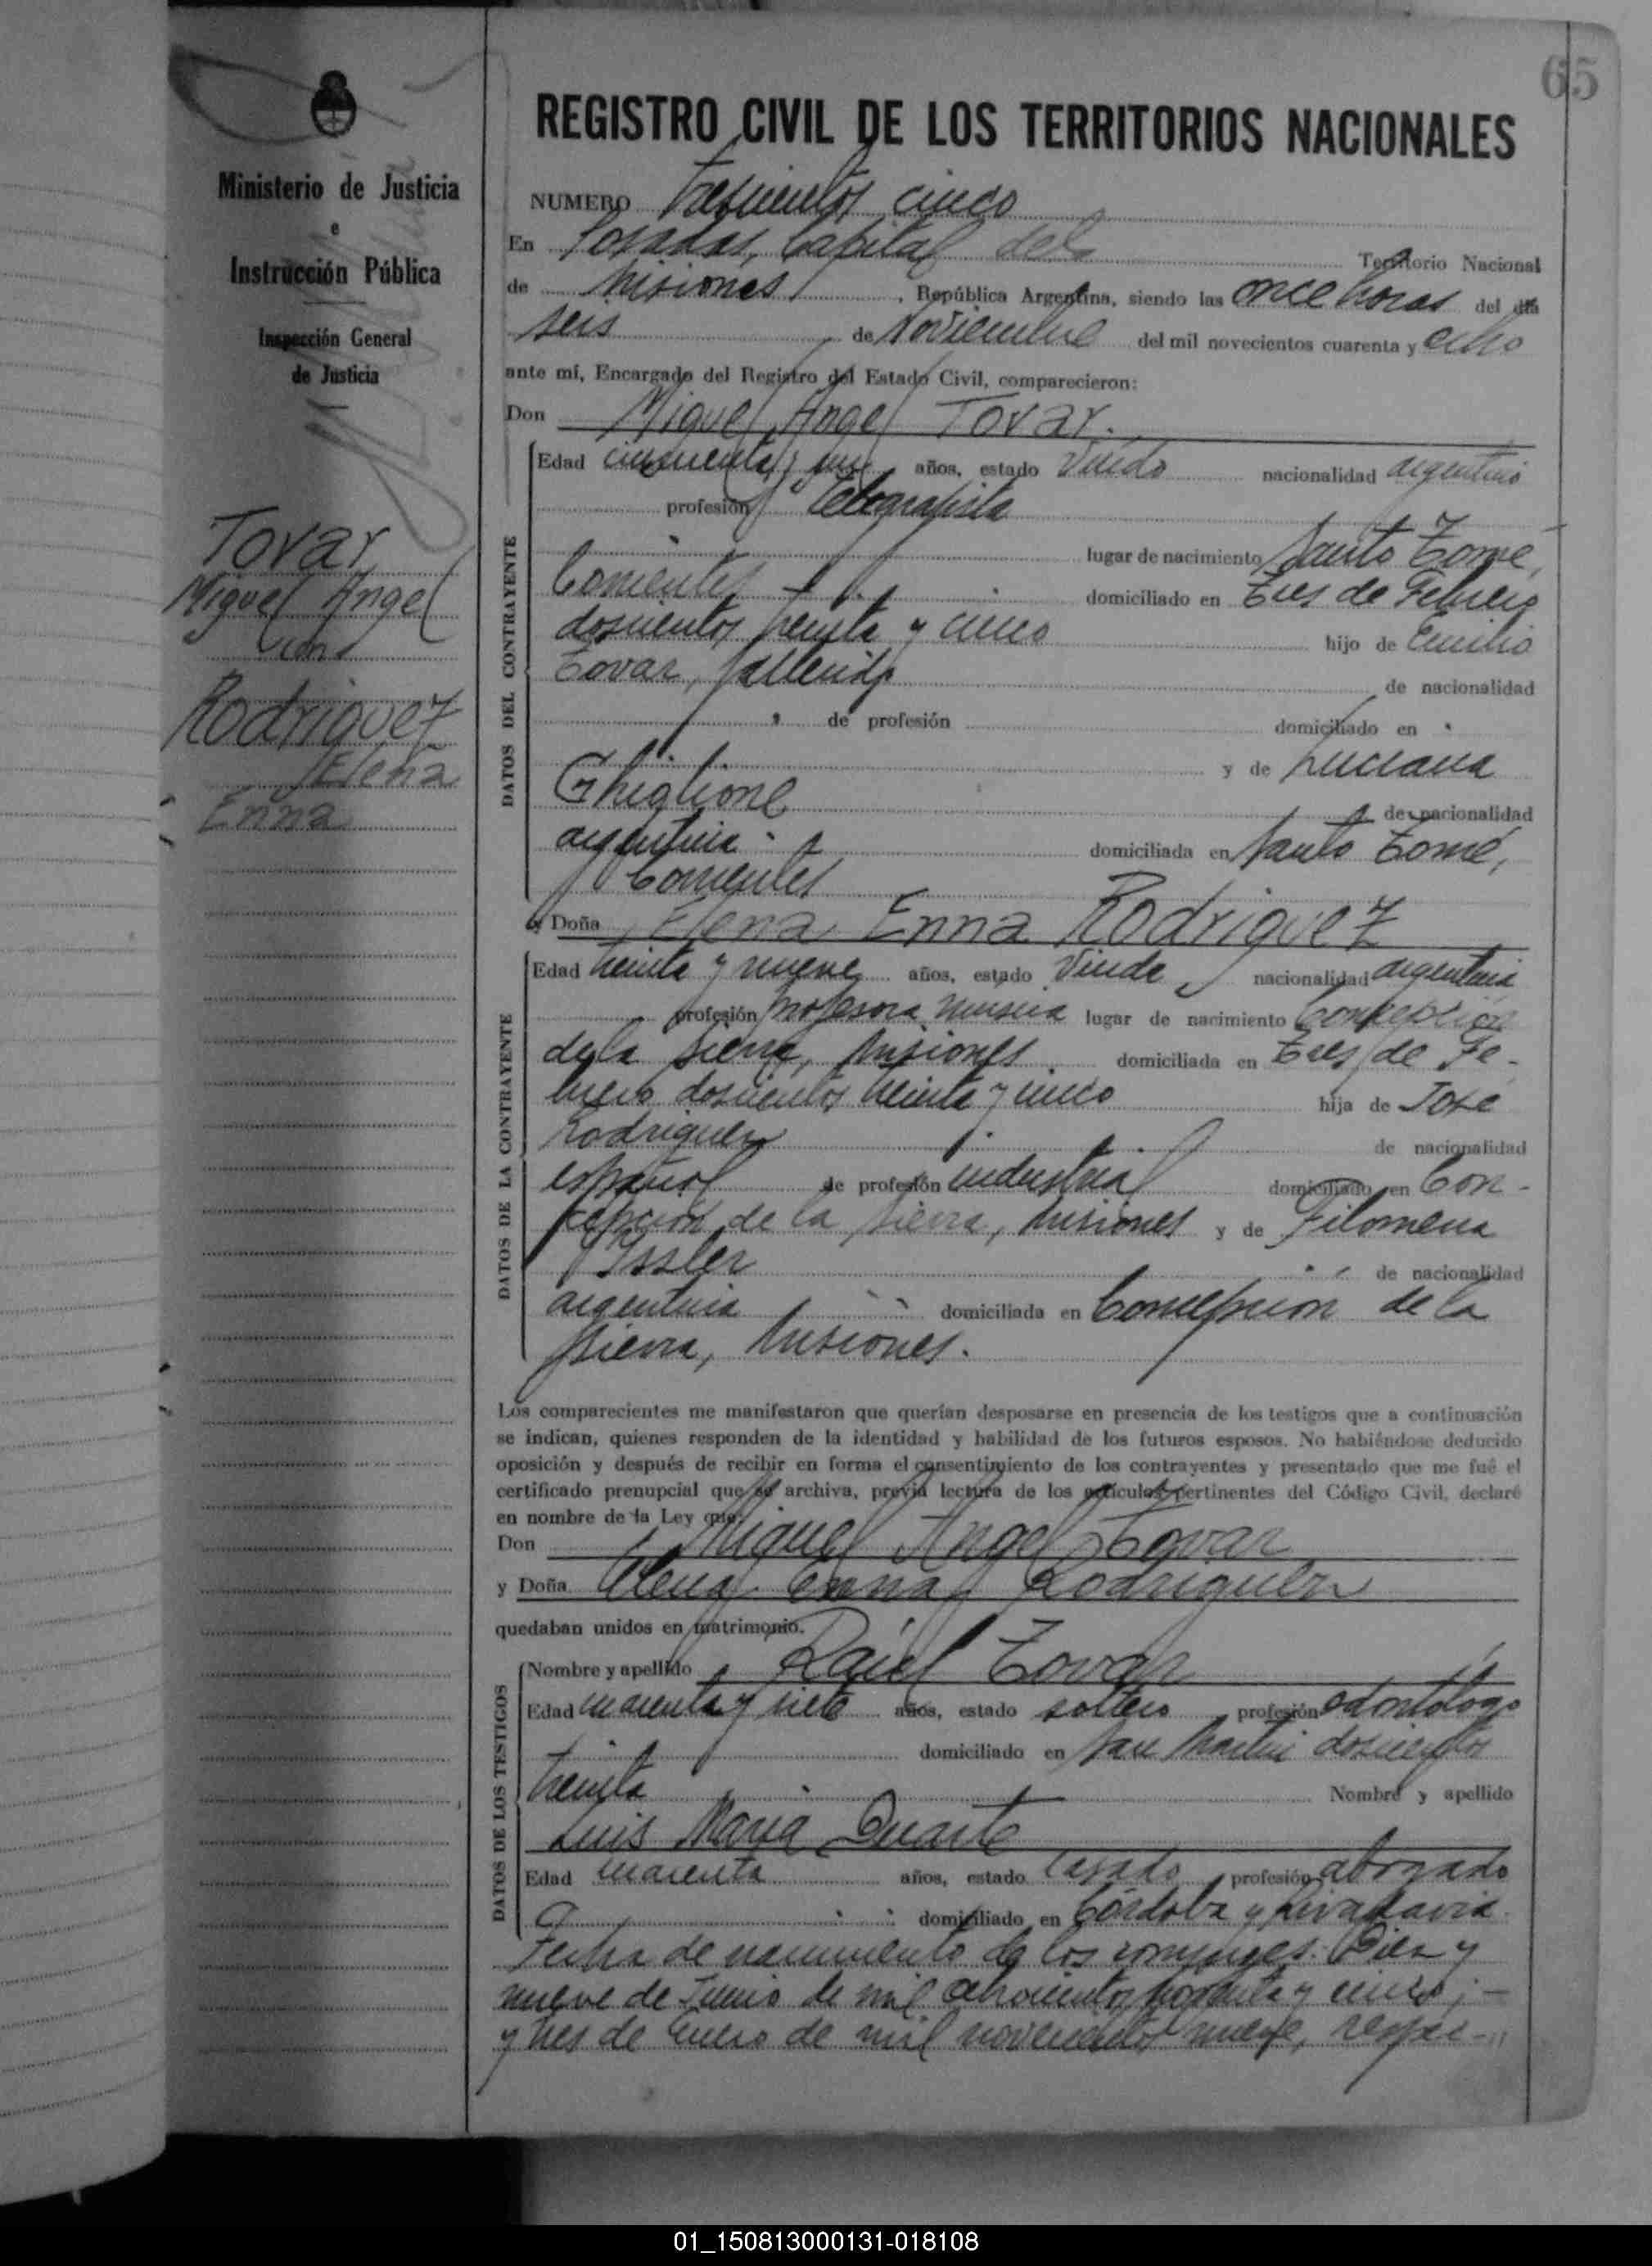 65
Ministerio de Justicia
e
Instrucción Pública
Inspección General
de Justicia
Tovar
Miguel Angel
con
Rodriguez
Elena
Enna
REGISTRO CIVIL DE LOS TERRITORIOS NACIONALES
NUMERO Trescientos cinco
En Posadas, Capital del Territorio Nacional
de Misiones, República Argentina, siendo las once horas del día
seis de Noviembre del mil novecientos cuarenta y ocho
ante mí, Encargado del Registro del Estado Civil, comparecieron:
Don Miguel Angel Tovar.
DATOS DEL CONTRAYENTE
Edad cincuenta y años, estado Viudo nacionalidad argentino
profesión telegrafista
lugar de nacimiento Santo Tomé,
Corrientes domiciliado en Tres de Febrero
doscientos treinta y cinco hijo de Emilio
Tovar, fallecido de nacionalidad
de profesión domiciliado en
y de Luciana
Ghiglione de nacionalidad
argentina domiciliada en Santo Tomé,
Corrientes
y Doña Elena Enna Rodriguez
DATOS DE LA CONTRAYENTE
Edad treinta y nueve años, estado Viuda nacionalidad argentina
profesión profesora lugar de nacimiento Concepción
de la Sierra, Misiones domiciliada en Tres de Fe-
brero doscientos treinta y cinco hija de José
Rodriguez de nacionalidad
español de profesión industrial domiciliado en Con-
cepción de la Sierra, Misiones y de Filomena
Issler de nacionalidad
argentina domiciliada en Concepción de la
Sierra, Misiones.
Los comparecientes me manifestaron que querían desposarse en presencia de los testigos que a continuación
se indican, quienes responden de la identidad y habilidad de los futuros esposos. No habiéndose deducido
oposición y después de recibir en forma el consentimiento de los contrayentes y presentado que me fué el
certificado prenupcial que se archiva, previa lectura de los artículos pertinentes del Código Civil, declaré
en nombre de la Ley que:
Don Miguel Angel Tovar
y Doña Elena Enna Rodriguez
quedaban unidos en matrimonio.
DATOS DE LOS TESTIGOS
Nombre y apellido Raúl Tovar
Edad cuarenta y siete años, estado soltero profesión odontólogo
domiciliado en San Martin doscientos
treinta Nombre y apellido
Luis Maria Duarte
Edad cuarenta años, estado casado profesión abogado
domiciliado en Córdoba y Rivadavia.
Fecha de nacimiento de los conyuges: Diez y
nueve de Junio de mil ochocientos noventa y cinco;-
y tres de Enero de mil novecientos nueve, respec-
01_150813000131-018108